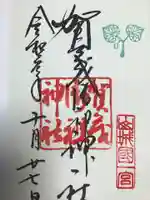 山城國一宮
賀茂御祖神社
賀茂御祖神社
令和 年十月廿七日